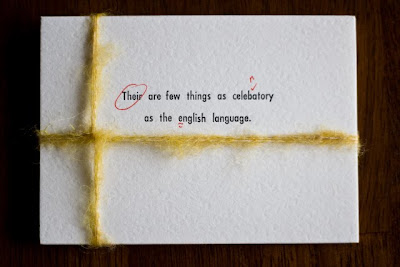 Their are few things as celebatory
as the english language.